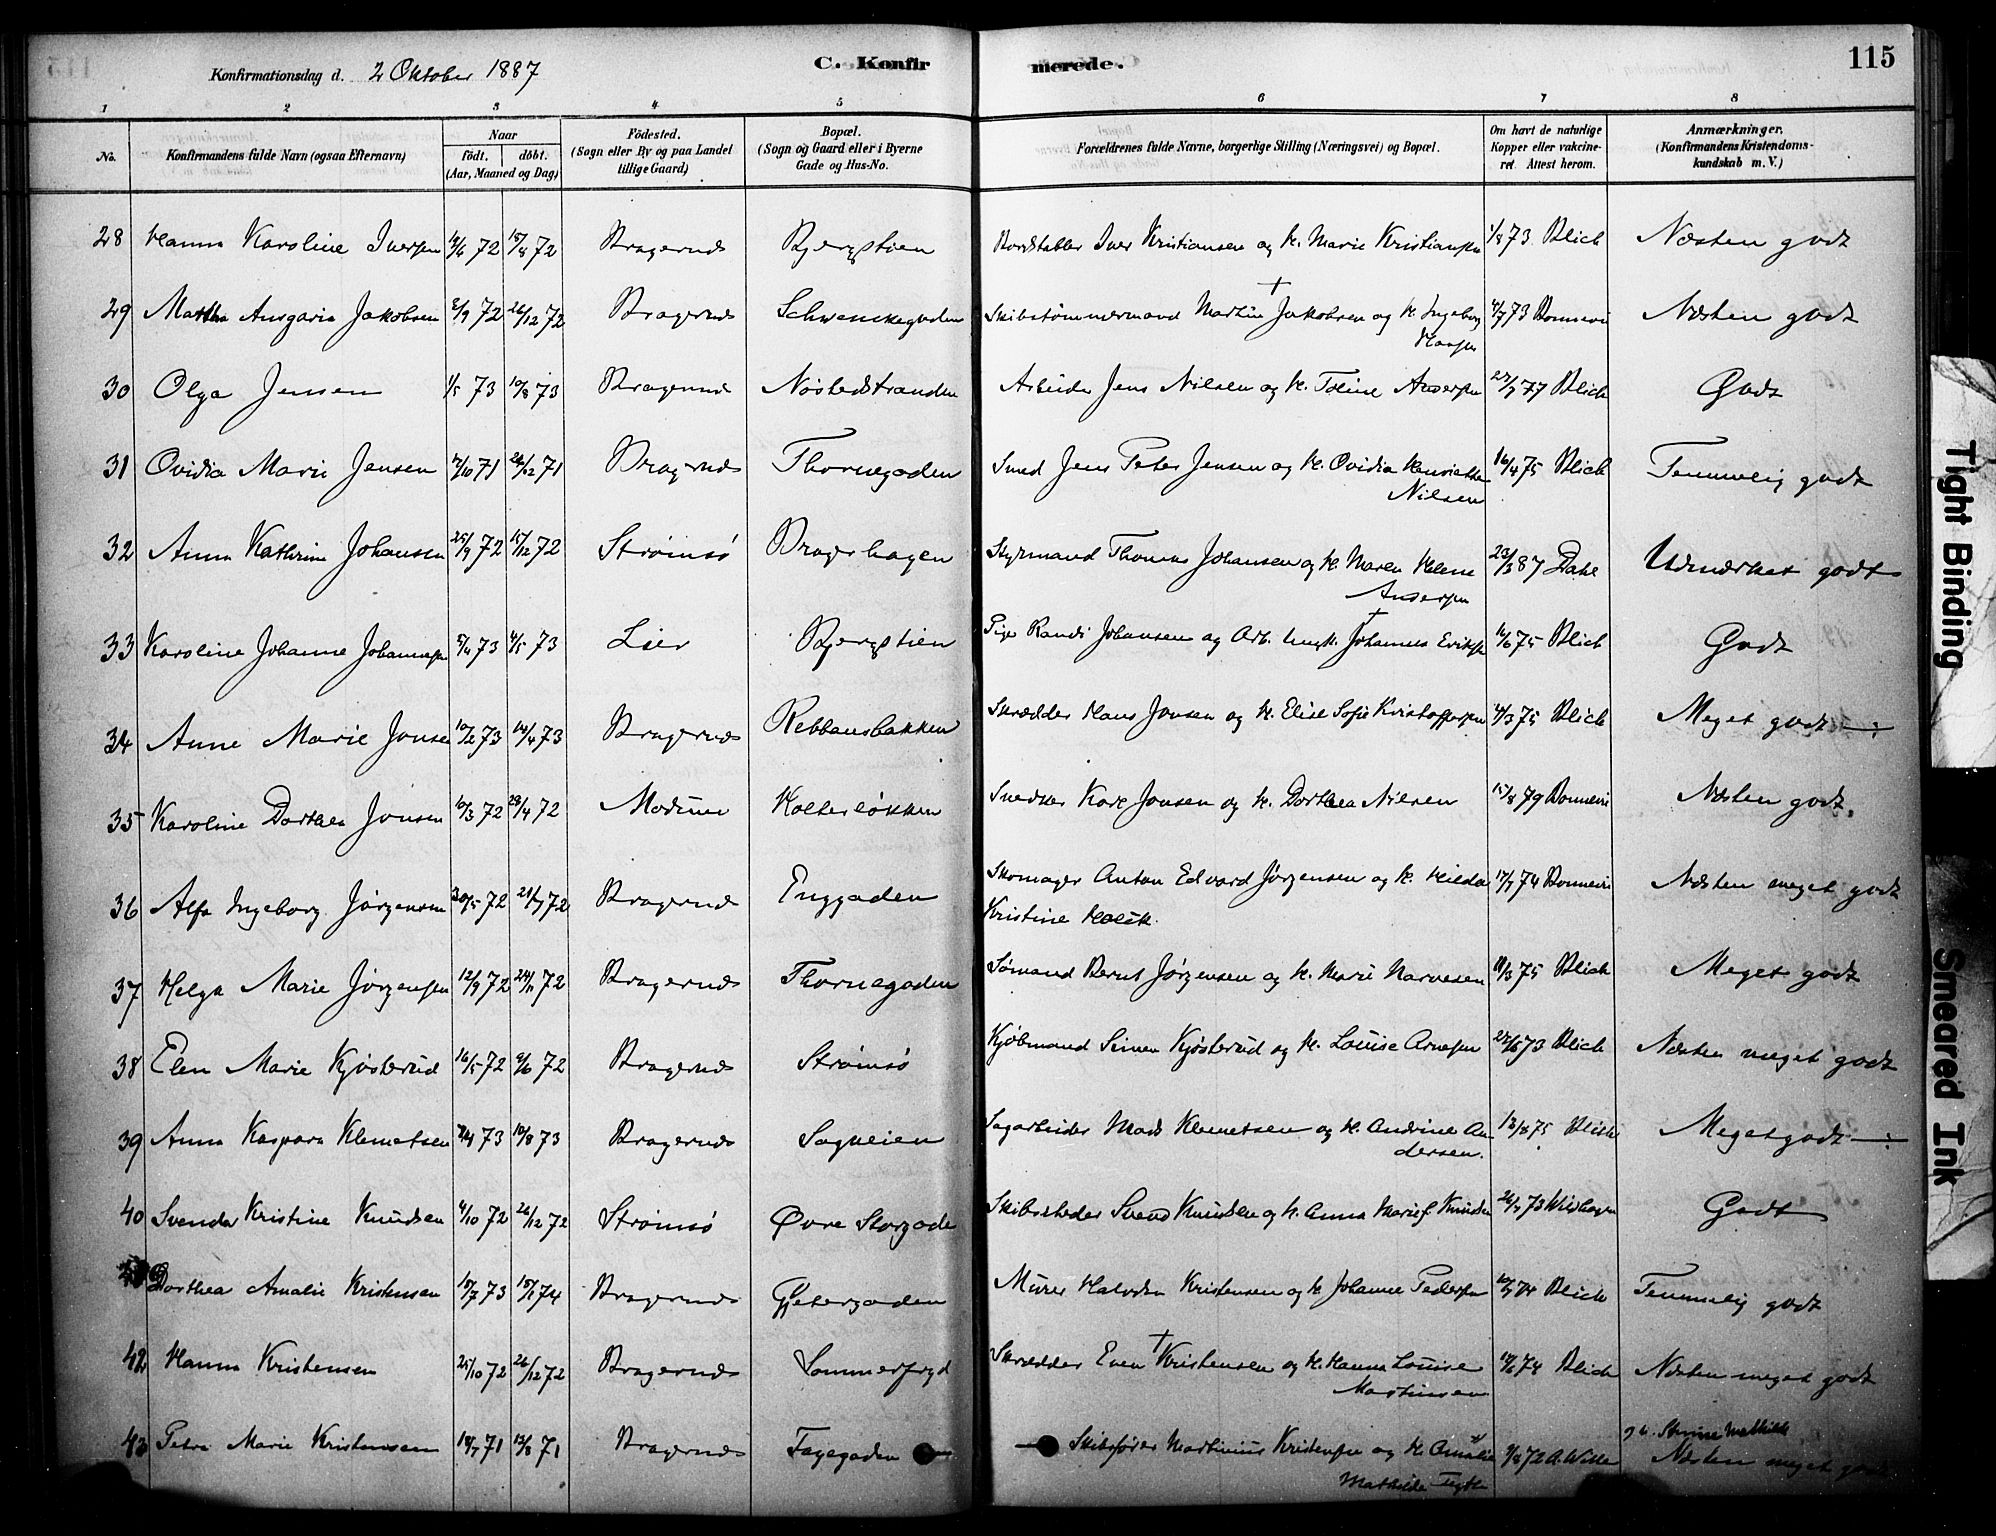 Konfirmationsdag d. 2 Oktober 1887 C. Konfirmerede. 115
1 2 3 4 5 6 7 8
No. Konfirmandens fulde Navn (ogsaa Efternavn) Naar födt. döbt. (Aar, Maaned og Dag) Födested. (Sogn eller By og paa Landet tillige Gaard) Bopæl. (Sogn og Gaard eller i Byerne Gade og Hus-No. Forældrenes fulde Navne, borgerlige Stilling (Næringsvei) og Bopæl. Om havt de naturlige Kopper eller vakcineret. Attest herom. Anmærkninger. (Konfirmandens Kristendomskundskab m. V.)
28 Hanna Karoline Iversen 72 15/8 72 Bragernæs Bjergstien Bordstabler Iver Kristiansen og H. Marie Kristiansen 1/8 73 Blich Næsten godt
29 Martha Ansgaria Jakobsen 2/9 72 26/12 72 Bragernæs Schwenckegaden Skibstømmermand Martin † Jakobsen og H. Ingeborg Hansen 4/7 73 Bonnevie Næsten godt
30 Olga Jensen 1/5 73 10/8 73 Bragernæs Nøstedstranden Arbeider Jens Nilsen og H. Toline Andersen 77 Blich Godt
31 Ovidia Marie Jensen 71 71 Bragernæs Thornegaden Smed Jens Peter Jensen og H. Ovidia Henriette Nilsen 16/4 75 Blich Temmelig godt
32 Anna Kathrine Johansen 25/9 72 15/12 72 Strømsø Bragerhagen Styrmand Thomas Johansen og H. Maren Helene Andersen 23/3 87 Dahl Udmærket godt
33 Karoline Johanne Johannesen 73 4/5 73 Lier Bjergstien Pige Randi Johansen og Arb. Ungk. † Johannes Eriksen 75 Blich Godt
34 Anne Marie Jonsen 10/2 73 14/4 73 Bragernæs Rebbansbakken Skrædder Hans Jonsen og H. Elise Sofie Kristoffersen 4/3 75 Blich Meget godt ÷
35 Karoline Dorthea Jonsen 10/3 72 28/4 72 Modum Kolterløkken Snedker Karl Jonsen og H. Dorthea Nilsen 15/8 79 Bonnevie Næsten godt.
36 Alfa Ingeborg Jørgensen 30/5 72 21/7 72 Bragernæs Enggaden Skomager Anton Edvard Jørgensen og H. Hilda Kristine 17/7 74 Bonnevie Næsten meget godt
37 Helga Marie Jørgensen 12/9 72 24/11 72 Bragernæs Thornegaden Sømand Bernt Jørgensen og H. Marie Narvesen 11/3 75 Blich Meget godt
38 Elen Marie Kjøsterud 16/5 72 9/6 72 Bragernæs Strømsø Kjøbmand Simen Kjøsterud og H. Louise Arnesen 73 Blich Næsten meget godt
39 Anna Kaspara Klemetsen 73 10/8 73 Bragernæs Sagveien Sagarbeider Mads Klemetsen og H. Andrine Andersen. 13/8 75 Blich Meget godt ÷
40 Svenda Kristine Knudsen 4/10 72 26/12 72 Strømsø Øvre Storgade Skibsreder Svend Knudsen og H. Anna Marie f. Knudsen 73 Godt
Dorthea Amalie Kristensen 18/7 73 18/1 74 Bragernæs Gjetergaden Murer Halvdan Kristensen og H. Johanne Pedersen 74 Blich Temmelig godt
42 Hanna Kristensen 25/10 72 26/12 72 Bragernæs Sommerfryd Skrædder Even † Kristensen og H. Hanna Louise Martinsen 74 Blich Næsten meget godt
43 Petra Marie Kristensen 18/7 71 13/8 71 Bragernæs Fayegaden Skibsfører Martinius Kristensen og H. Amalie Mathilde 72 A. Wille Næsten meget godt
Tight Binding
Smeared Ink